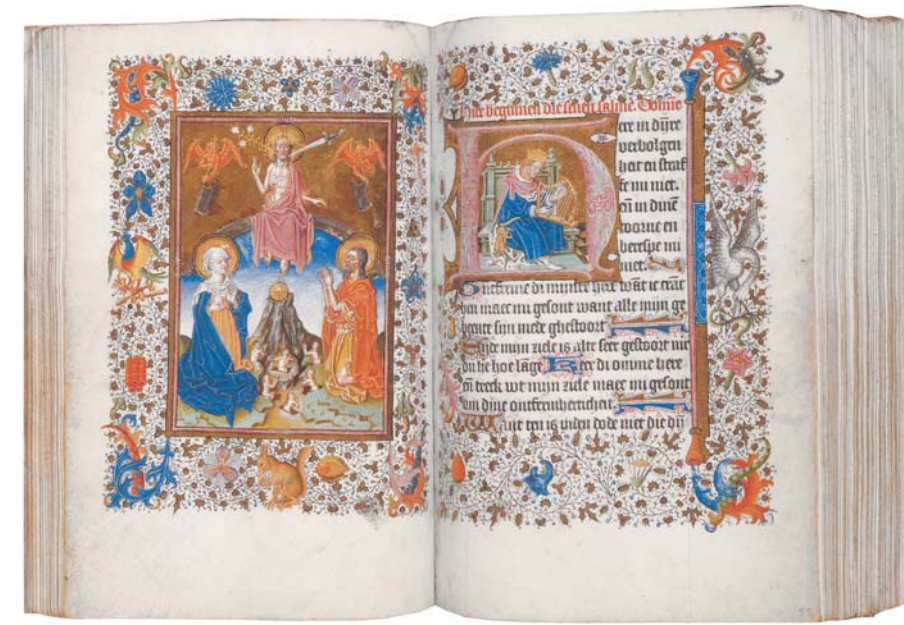 Hier beginnen die seven salme. Domine
ere in dijre
verbolgen
heit en straf
fe mi niet.
en in dinē
toorne en
berespe mi
niet.
Ontferme di mijnre here want ic cranc
ben maec mi gesont want alle mijn ge
beente sijn mede ghestoort
Ende mijn ziele is alte seer gestoort mer
du he hoe lāge Keer di omme here
eñ treck wt mijn ziele maec mi gesont
om dine ontfermherticheit
Want ten is inden dode niet die dij